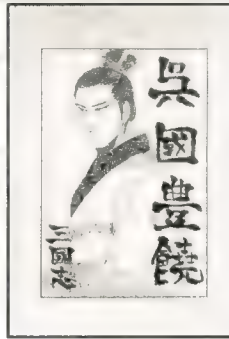 吳國豊饒
三國志